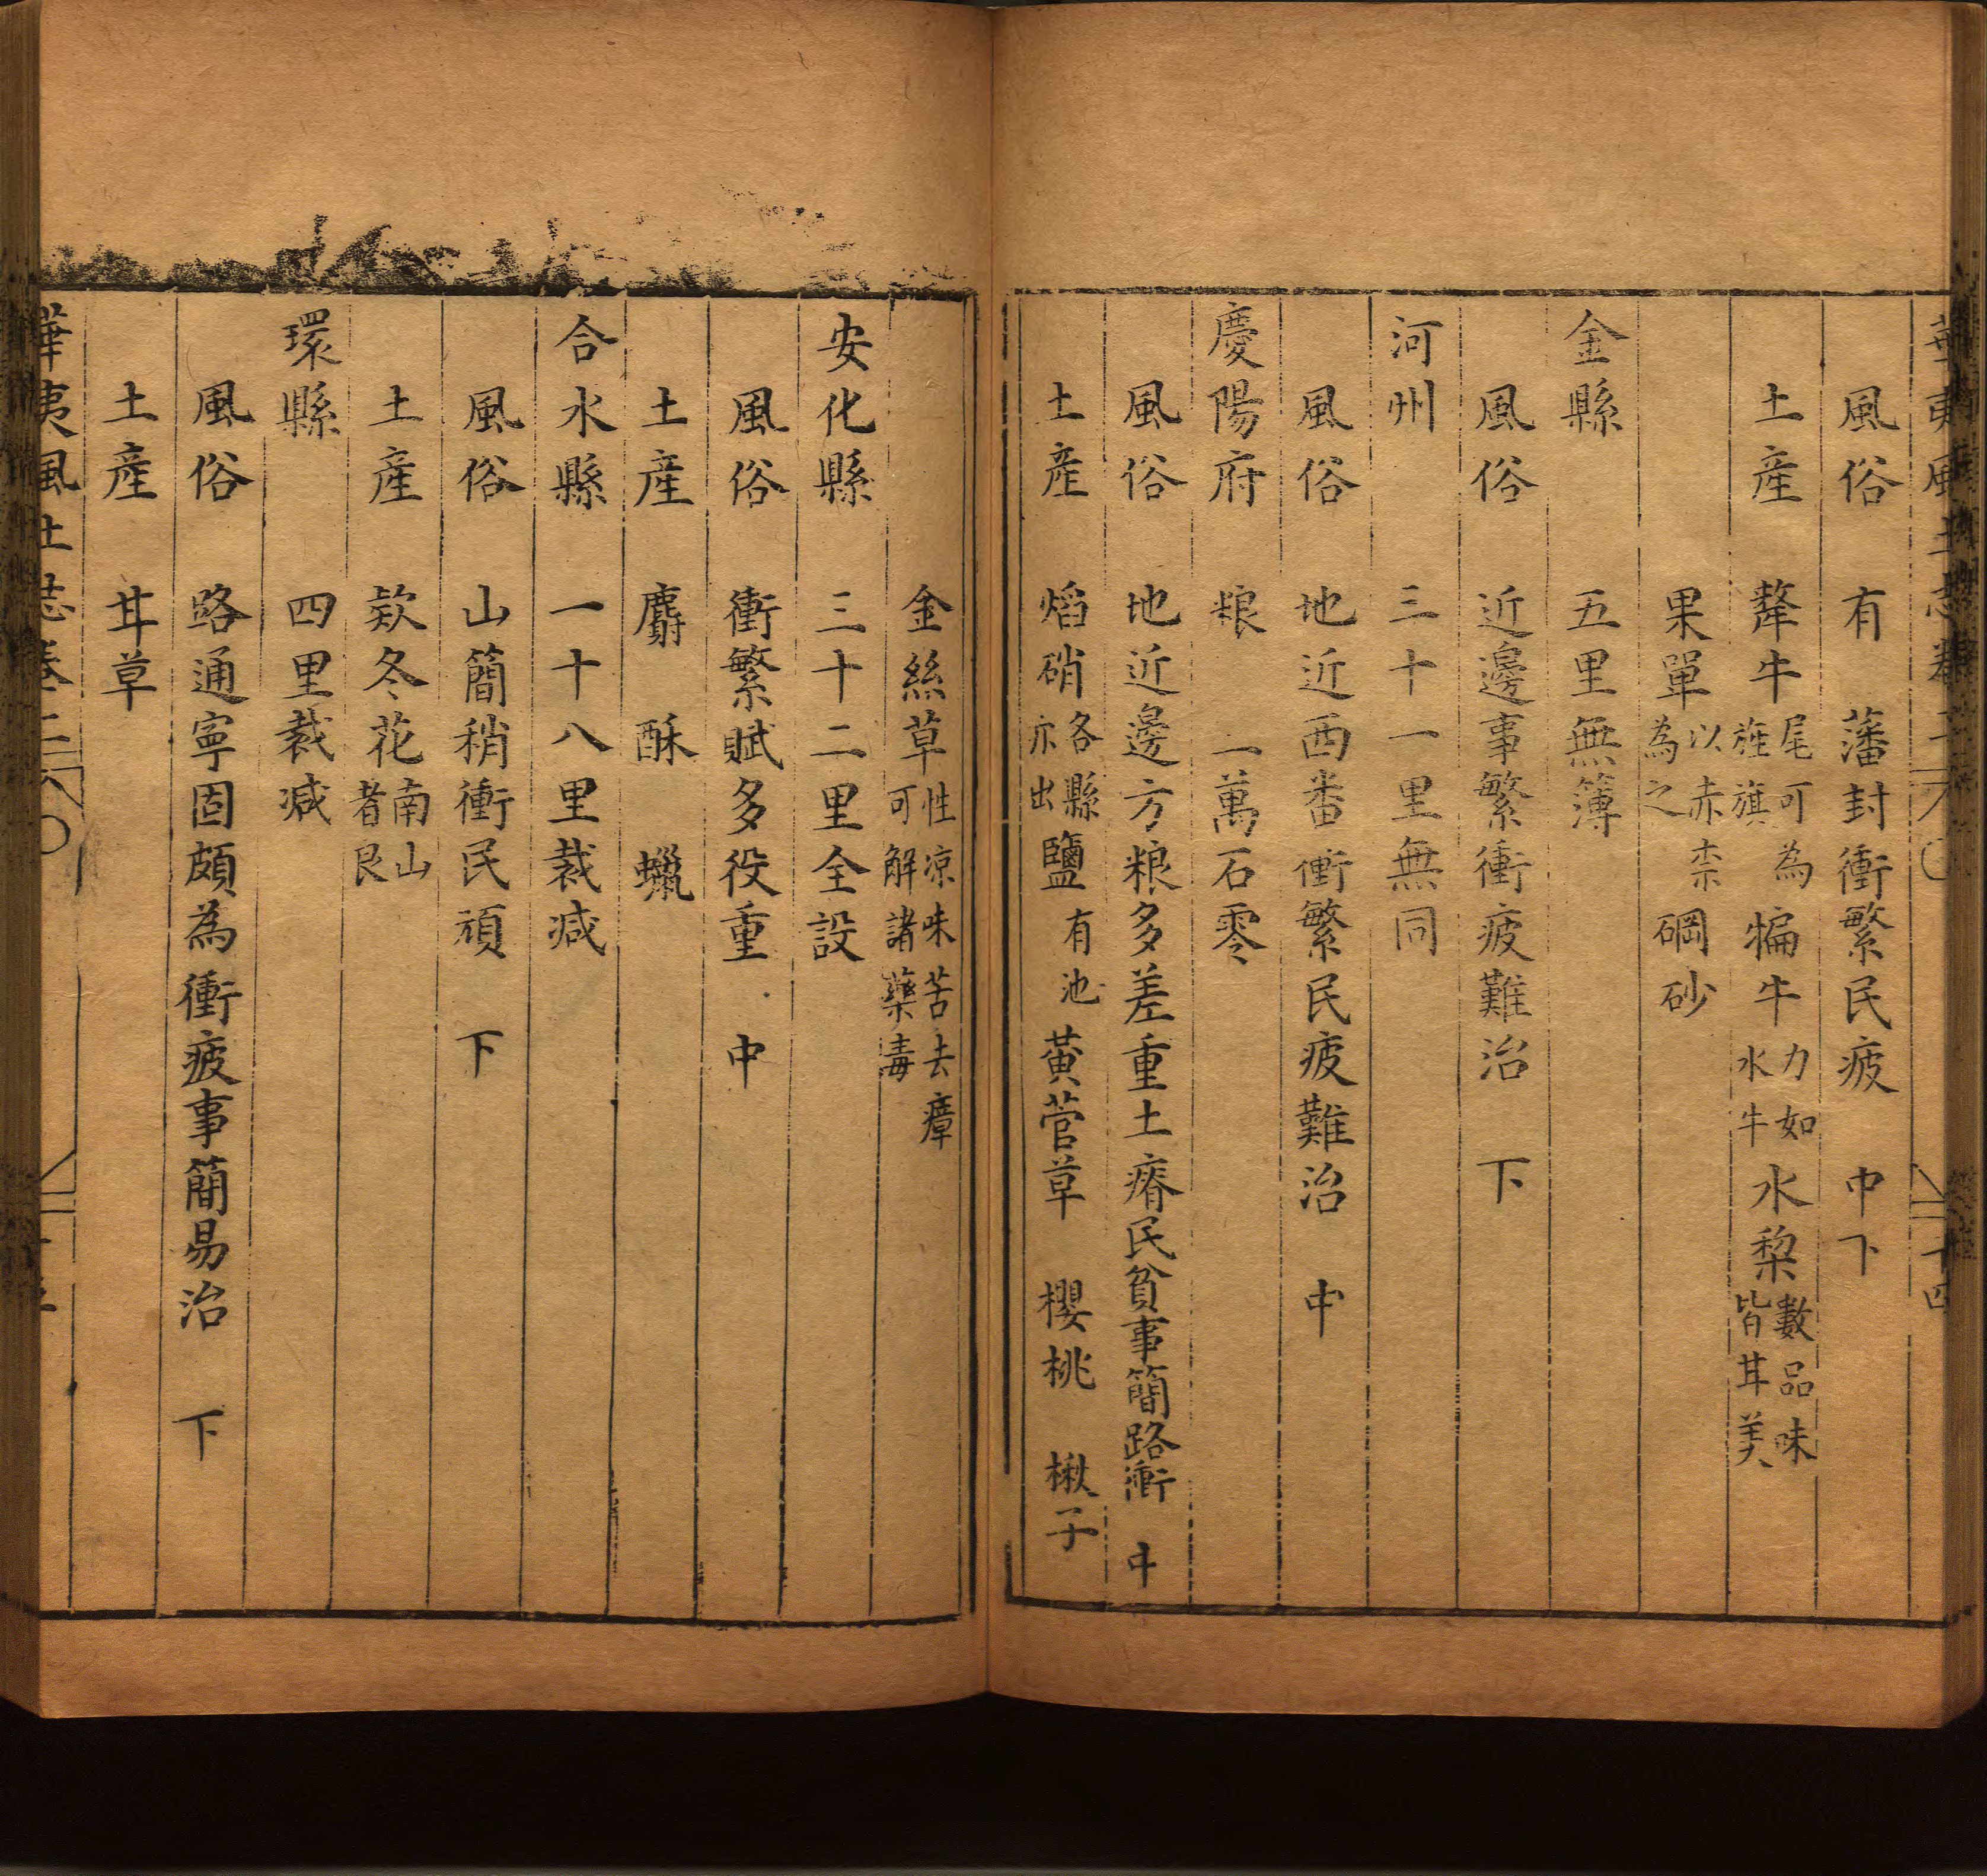 華夷風土志卷二 十四
風俗 有藩封衝繁民疲 中下
土產 犛牛尾可為旌旗 犏牛力如水牛 水梨數品味皆甘美
果單以赤柰為之 碙砂
金縣 五里無簿
風俗 近邊事繁衝疲難治 下
河州 三十一里無同
風俗 地近西番衝繁民疲難治 中
慶陽府 粮一萬石零
風俗 地近邊方粮多差重土瘠民貧事簡路衝 中
土產 焰硝各縣亦出 鹽有池 黃菅草 櫻桃 楸子
金絲草性凉味苦去瘴可解諸藥毒
安化縣 三十二里全設
風俗 衝繁賦多役重 中
土產 麝 酥 蠟
合水縣 一十八里裁减
風俗 山簡稍衝民頑 下
土產 欵冬花南山者良 
環縣 四里裁减
風俗 路通寧固頗為衝疲事簡易治 下
土產 甘草
華夷風土志卷二